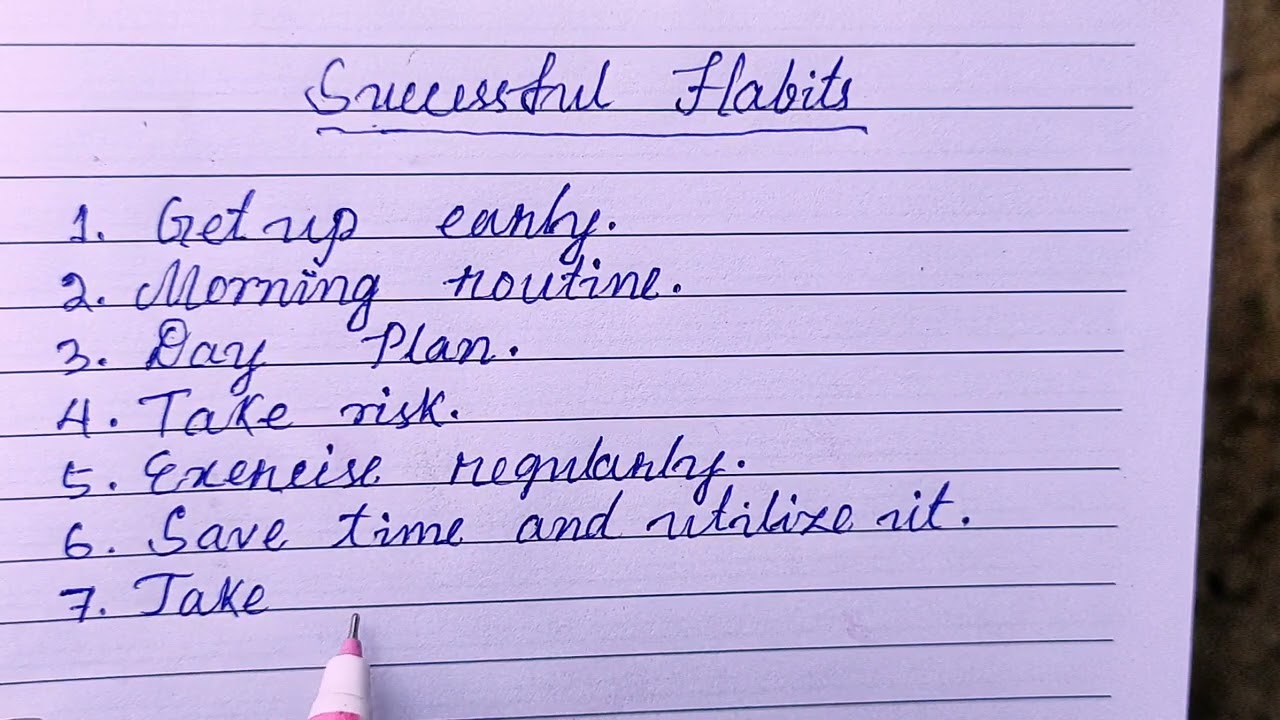 Successful Habits
1. Get up early.
2. Morning routine.
3. Day Plan.
4. Take risk.
5. Exercise regularly.
6. Save time and utilize it.
7. Take